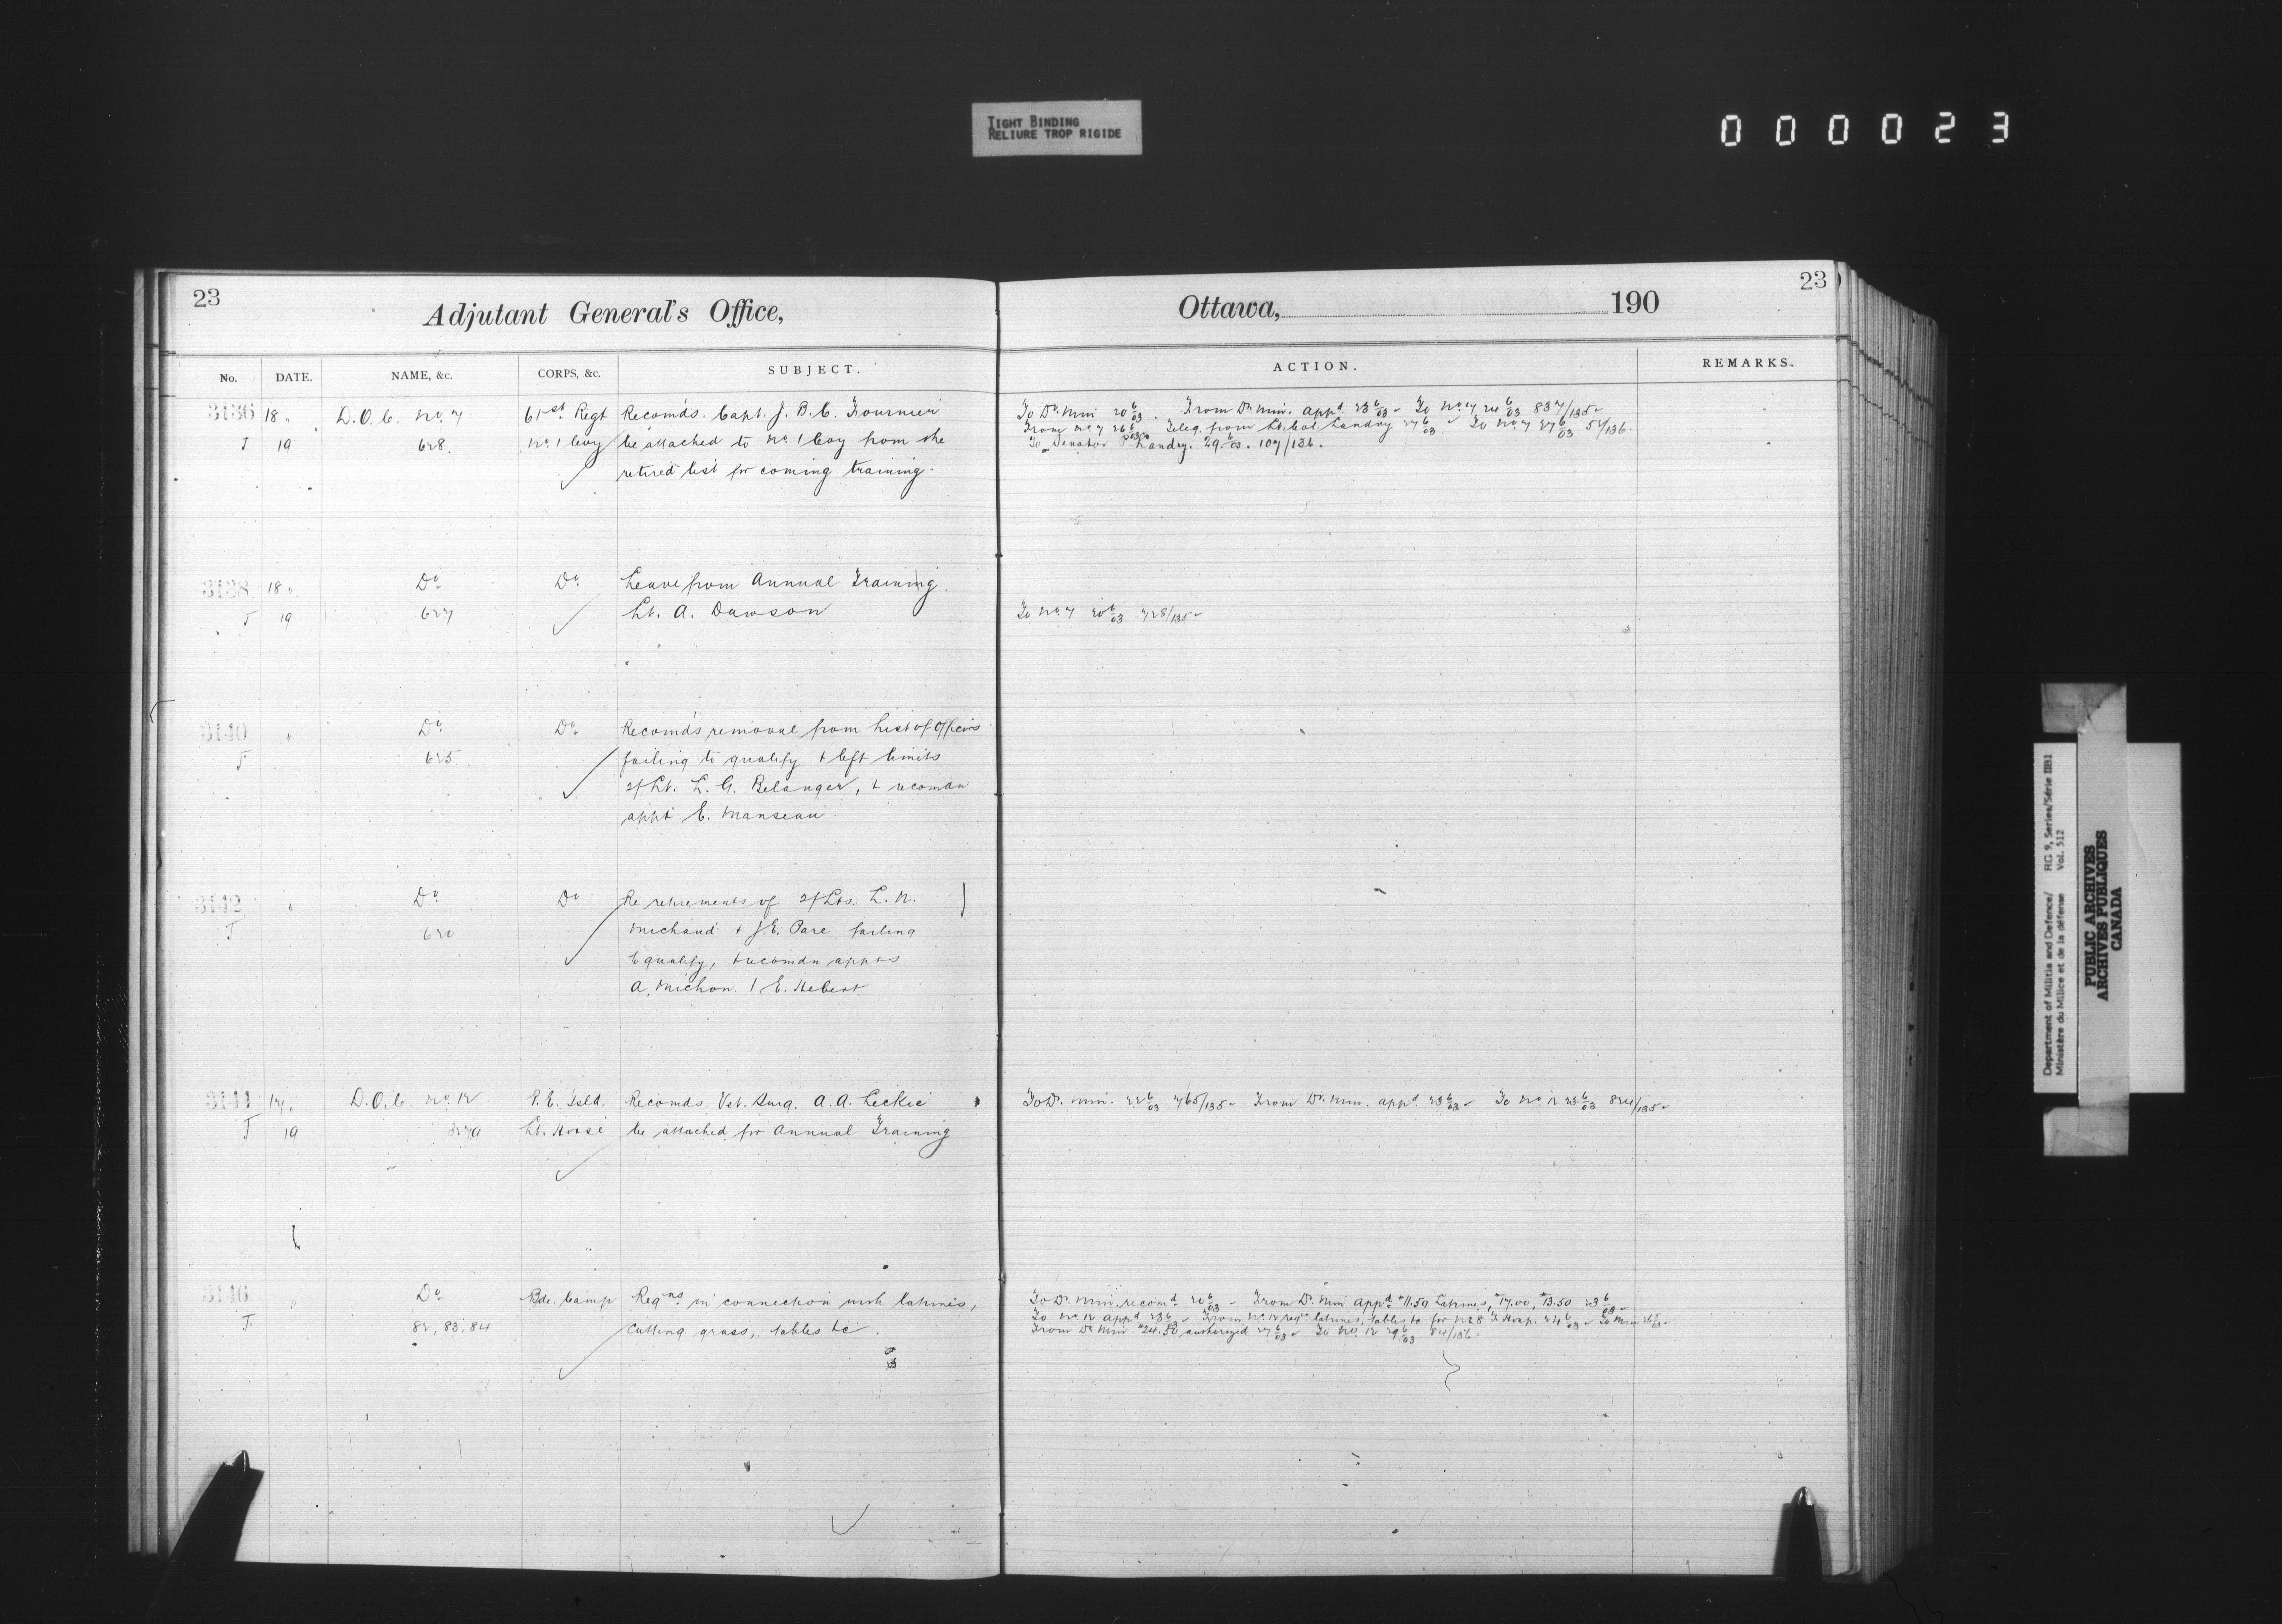 TIGHT BINDING
RELIURE TROP RIGIDE
000023
23
Adjutant General's Office,
No. DATE. NAME, &c. CORPS, &c. SUBJECT.
3136 18 " D.O.C. No. 7 61st Regt Recomds. Capt. J. B. C. Fournier
T 19 628. No. 1 Coy be attached to No. 1 Coy from the
retired list for coming training.
3138 18 " Do Do Leave from Annual Training.
T 19 627 Lt. A. Dawson
3140 " Do Do Recomds removal from List of Officers
T 625. failing to qualify & left limits
2/Lt. L. G. Belanger, & recomdn
appt E. Manseau.
3142 " Do Do Re retirements of 2/Lts. L. N.
T 620 Michaud & J. E. Pare failing
to qualify, & recomdn appts
A. Michon & E. Hebert
3144 17 " D.O.C. No. 12 P. E. Isld. Recomds. Vet. Surg. A. A. Leckie
T 19 Lt. Horse be attached for Annual Training
3146 " Do Bde. Camp Reqns. in connection with latrines,
T. 82, 83, 84 Cutting grass, tables &c.
23
Ottawa, 190
ACTION. REMARKS.
To Dy. Min 20 6/03. From Dy. Min. appd 23 6/03 To No. 7 24 6/03 837/135
From No. 7 26 6/03 Teleg. from Lt. Col. Landry 27 6/03. To No. 7 27 6/03 54/136.
To Senator Landry. 29 6/03. 107/136.
To No. 7 20 6/03 728/135
To Dy. Min. 22 6/03 765/135 From Dy. Min. appd 23 6/03 To No. 12 23 6/03 824/135
To Dy. Min. recomd 20 6/03 From Dy. Min appd $11.50 Latrines, $17.00, $13.50 23 6/03
To No. 12 appd 23 6/03 From No. 12 reqn. latrines, tables &c for No. 8 F. Hosp. 24 6/03 To Min 26 6/03
From Dy. Min. $24.50 authorized 27 6/03 To No. 12 29 6/03 84/136
Department of Militia and Defence/ RG 9, Series/Série IIB1
Ministère du Milice et de la défense Vol. 512
PUBLIC ARCHIVES
ARCHIVES PUBLIQUES
CANADA